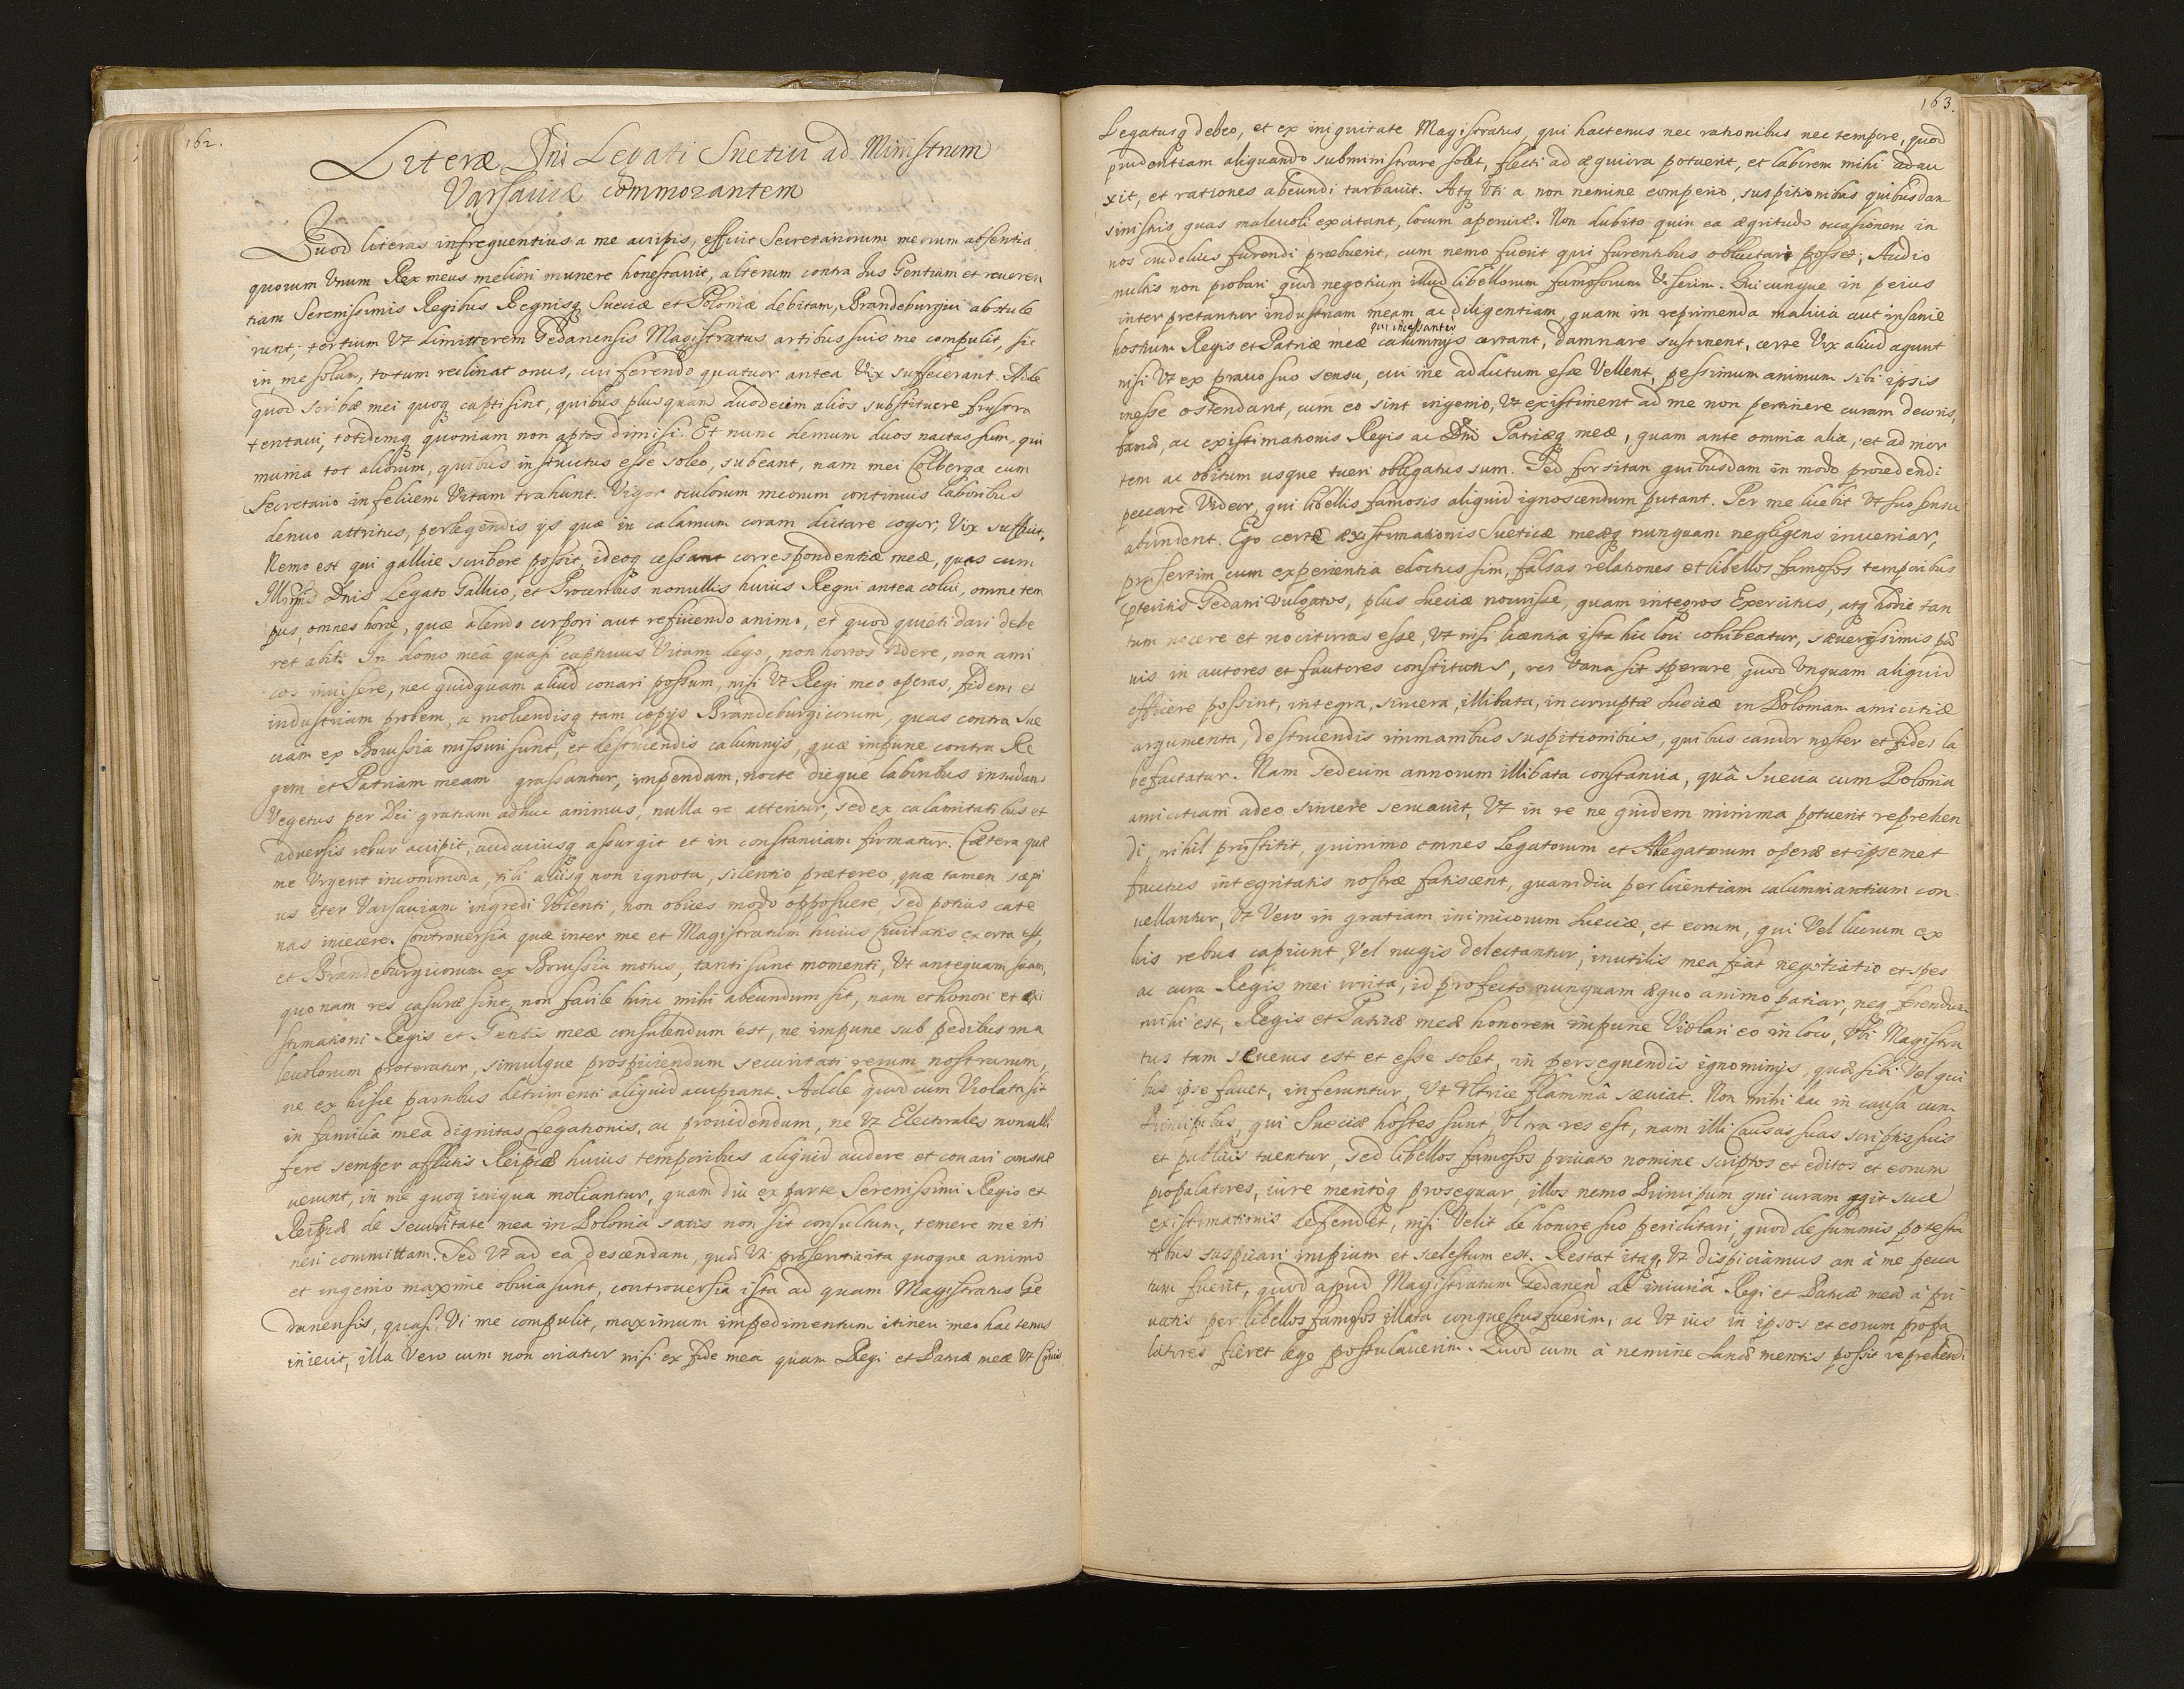 162.
Literæ Dni Legati Suetici ad Ministrum
Varsaviæ commorantem
Quod literas infrequentius a me accipis, efficit Secretariorum meorum absentia
quorum Unum Rex meus meliori munere honestavit, alterum contra Jus Gentium et reveren
tiam Serenissimis Regibus Regnisq Sueciæ et Poloniæ debitam, Brandeburgici abstule
runt, tertium Vt dimitterem Gedanensis Magistratus artibus suis me compulit, sic
in me solum, totum reclinat onus, cui ferendo quatuor antea Vix suffecerant. Adde
quod scribæ mei quoq capti sint, quibus plusquam duodecim alios substituere frustra
tentavi, totidemq quoniam non aptos dimisi. Et nunc demum duos nactus sum, qui
munia tot aliorum, quibus instructus esse soleo, subeant, nam mei Colbergæ cum
Secretario infelicem Vitam trahunt. Vigor oculorum meorum continuis laboribus
denuo attritus, perlegendis ijs quæ in calamum coram dictare cogor, Vix sufficit,
Nemo est qui gallice scribere possit, ideoq cessant correspondentiæ meæ, quas cum
Dnis Legato Gallico, et Proceribus nonullis huius Regni antea colui, omne tem
pus, omnes horæ, quæ alendo corpori aut reficiendo animo, et quod quieti dari debe
ret abit. In domo meâ quasi captivus Vitam dego, non hortos Videre, non ami
cos invisere, nec quidquam aliud conari possum, nisi Vt Regi meo operas, fidem et
industriam probem, a moliendisq tam copijs Brandeburgicorum, quas contra Sue
ciam ex Borussia missuri sunt, et destruendis calumnijs, quæ impune contra Re
gem et Patriam meam grassantur, impendam, nocte dieque laboribus insudans
Vegetus per Dei gratiam adhuc animus, nulla re atteritur, sed ex calamitatibus et
adversis robur accipit, audaciusq assurgit et in constantiam firmatur. Cætera quæ
me Urgent incommoda, tibi alijsq non ignota, silentio prætereo, quæ tamen sæpi
us iter Varsaviam ingredi Volenti, non obices modo opposuere, sed potius cate
nas iniecere. Controversia quæ inter me et Magistratum huius Civitatis exorta est,
et Brandeburgicorum ex Borussia motus, tanti sunt momenti, Vt antequam sciam,
quo nam res casuræ sint, non facile hinc mihi abeundum sit, nam et honori et exi
stimationi Regis et Gentis meæ consulendum est, ne impune sub pedibus ma
levolorum proteratur, simulque prospiciendum securitati rerum nostrarum,
ne ex hisce partibus detrimenti aliquid accipiant. Adde quod cum Violata sit
in familia mea dignitas Legationis, ac providendum, ne Vt Electorales nonulli
fere semper afflictis Reipcæ huius temporibus aliquid audere et conari consue
verunt, in me quoq iniqua moliantur, quam diu ex parte Serenissimi Regis et
Reipcæ de securitate mea in Polonia satis non sit consultum, temere me iti
neri committam. Sed Vt ad ea descendam, quæ Vti præsentia ita quoque animo
et ingenio maxime obvia sunt, controversia ista ad quam Magistratus Ge
danensis, quasi Vi me compulit, maximum impedimentum itineri meo hactenus
iniecit, illa Vero cum non oriatur nisi ex fide mea quam Regi et Patriæ meæ Vt Civis
163.
Legatusq debeo, et ex iniquitate Magistratus, qui hactenus nec rationibus nec tempore, quod
prudentiam aliquando subministrare solet, flecti ad æquiora potuerit, et laborem mihi adau
xit, et rationes abeundi turbavit. Atq Vti a non nemine comperio, suspitionibus quibusdam
sinistris, quas malevoli excitant, locum aperuit. Non dubito quin ea ægritudo occasionem in
nos crudelius furendi præbuerit, cum nemo fuerit qui furentibus obluctari posset, Audio
multis non probari quod negotium illud libellorum famosorum Vrserim. Quicunque in peius
interpretantur industriam meam ac diligentiam, quam in reprimenda malitia aut insaniæ
qui incessanter
hostium Regis et Patriæ meæ calumnijs certant, damnare sustinent, certe Vix aliud agunt
nisi Vt ex pravo suo sensu, cui me addictum esse Vellent, pessimum animum sibi ipsis
inesse ostendant, cum eo sint ingenio, Vt existiment ad me non pertinere curam decoris,
famæ, ac existimationis Regis ac Dni Patriæq meæ, quam ante omnia alia, et ad mor
tem ac obitum usque tueri obligatus sum. Sed forsitan quibusdam in modo procedendi
peccare Videor, qui libellis famosis aliquid ignoscendum putant. Per me licebit Vt suo sensu
abundent. Ego certe existimationis Sueticæ meæq nunquam negligens inveniar,
præsertim cum experientia edoctus sim, falsas relationes et libellos famosos temporibus
præteritis Gedani Vulgatos, plus Sueciæ nocuisse, quam integros Exercitus, atq hodie tan
tum nocere et nocituras esse, Vt nisi licentia ista hic loci cohibeatur, severissimis pæ
nis in autores et fautores constitutis, res Vana sit sperare quod Vnquam aliquid
efficere possint, integra, sincera, illibata, incorruptæ Sueciæ in Poloniam amicitiæ
argumenta, destruendis immanibus suspitionibus, quibus candor noster et fides la
befactatur. Nam sedecim annorum illibata constantia, quâ Suecia cum Polonia
amicitiam adeo sincere servavit, Vt in re ne quidem minima potuerit reprehen
di, nihil præstitit, quinimo omnes Legatorum et Ablegatorum operæ et ipsemet
fructus integritatis nostræ fatiscent, quamdiu per licentiam calumniantium con
vellantur, Vt Vero in gratiam inimicorum Sueciæ, et eorum, qui Vel lucrum ex
his rebus capiunt, Vel nugis delectantur, inutilis mea fiat negotiatio et spes
ac cura Regis mei irrita, id profecto nunquam æquo animo patiar, neq ferendum
mihi est, Regis et Patriæ meæ honorem impune Violari eo in loco, Vbi Magistra
tus tam severus est et esse solet, in persequendis ignominijs, quæ sibi Vel qui
bus ipse favet, inferuntur, Vt Vltrice flammâ sæviat. Non mihi hac in causa cum
Principibus, qui Sueciæ hostes sunt, Vlla res est, nam illi causas suas scriptis suis
et publicis tuentur, sed libellos famosos privato nomine scriptos et editos et eorum
propalatores, iure meritoq prosequar, illos nemo Principum qui curam agit suæ
existimationis defendet, nisi Velit de honore suo periclitari, quod de summis potesta
tibus suspicari impium et scelestum est. Restat itaq, Vt dispiciamus an à me pecca
tum fuerit, quod apud Magistratum Gedanens de iniuria Regi et Patriæ meæ à pri
vatis per libellos famosos illata conquestus fuerim, ac Vt ius in ipsos et eorum propa
latores fieret lege postulaverim. Quod cum à nemine sanæ mentis possit reprehendi